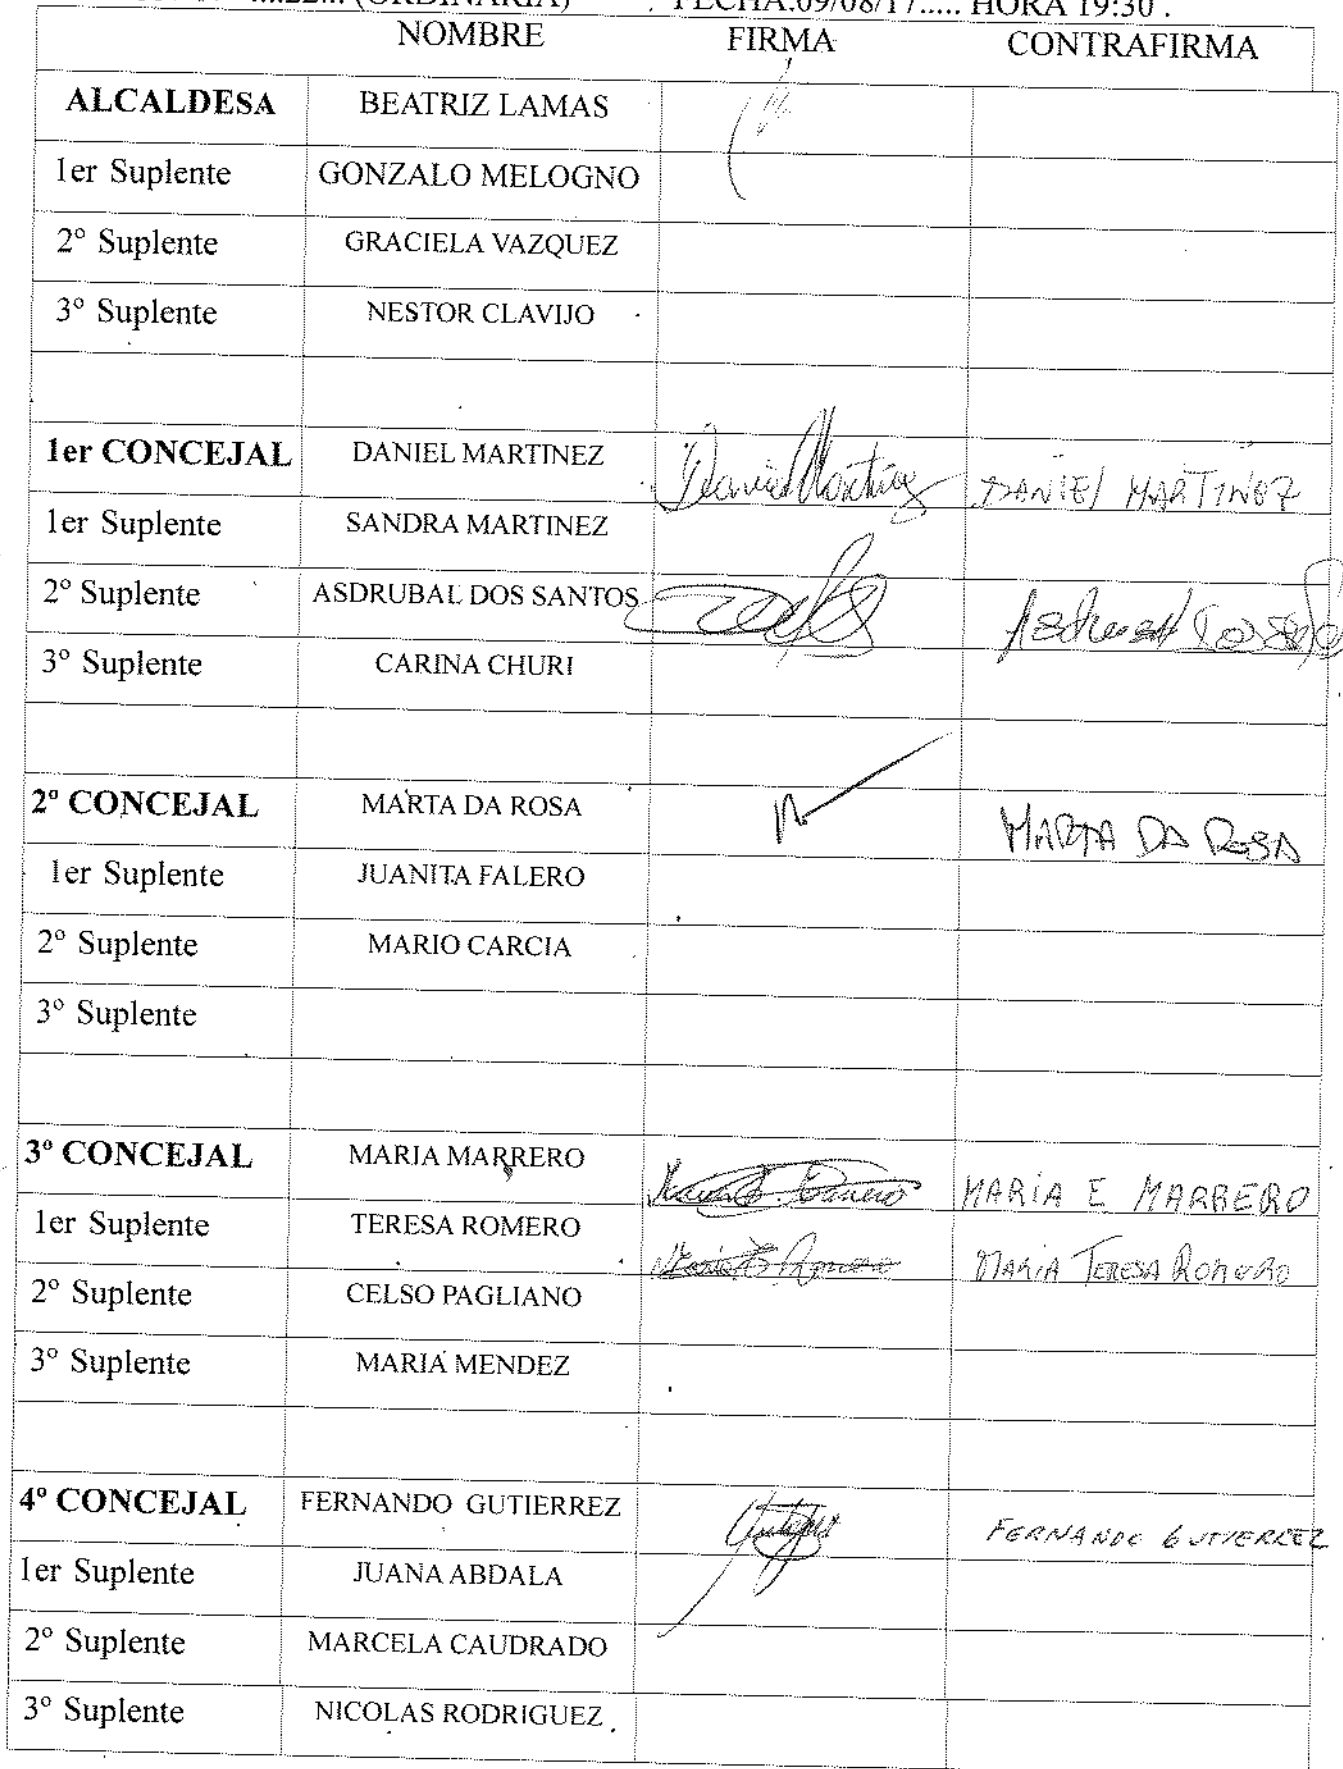 ....22... (ORDINARIA) FECHA:09/08/17..... HORA 19:30 .
NOMBRE FIRMA CONTRAFIRMA
ALCALDESA BEATRIZ LAMAS
1er Suplente GONZALO MELOGNO
2° Suplente GRACIELA VAZQUEZ
3° Suplente NESTOR CLAVIJO
1er CONCEJAL DANIEL MARTINEZ Daniel Martínez DANIEL MARTINEZ
1er Suplente SANDRA MARTINEZ
2° Suplente ASDRUBAL DOS SANTOS
3° Suplente CARINA CHURI
2º CONCEJAL MARTA DA ROSA MARTA DA ROSA
1er Suplente JUANITA FALERO
2° Suplente MARIO CARCIA
3° Suplente
3º CONCEJAL MARIA MARRERO MARIA E MARRERO
1er Suplente TERESA ROMERO MARIA TERESA ROMERO
2° Suplente CELSO PAGLIANO
3° Suplente MARIA MENDEZ
4º CONCEJAL FERNANDO GUTIERREZ FERNANDO GUTIERREZ
1er Suplente JUANA ABDALA
2° Suplente MARCELA CAUDRADO
3° Suplente NICOLAS RODRIGUEZ